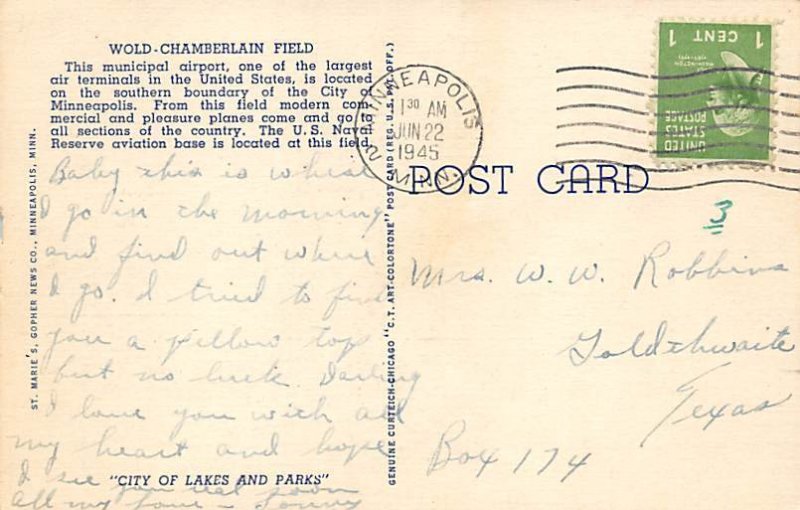 WOLD-CHAMBERLAIN FIELD
This municipal airport, one of the largest
air terminals in the United States, is located
on the southern boundary of the City of
Minneapolis. From this field modern com-
mercial and pleasure planes come and go to
all sections of the country. The U.S. Naval
Reserve aviation base is located at this field.
Baby this is where
I go in the morning
and find out where
I go. I tried to find
you a pillow top
but no luck. Darling
I love you with all
my heart and hope
I see you real soon
all my love -
"CITY OF LAKES AND PARKS"
ST. MARIE'S, GOPHER NEWS CO., MINNEAPOLIS, MINN.
GENUINE CURTEICH-CHICAGO "C.T. ART-COLORTONE" POST CARD (REG. U.S. PAT. OFF.)
MINNEAPOLIS
1 30 AM
JUN 22
1945
2 MINN.
POST CARD
1 CENT 1
WASHINGTON
UNITED
STATES
POSTAGE
3
Mrs. W. W. Robbins
Goldthwaite
Texas
Box 174